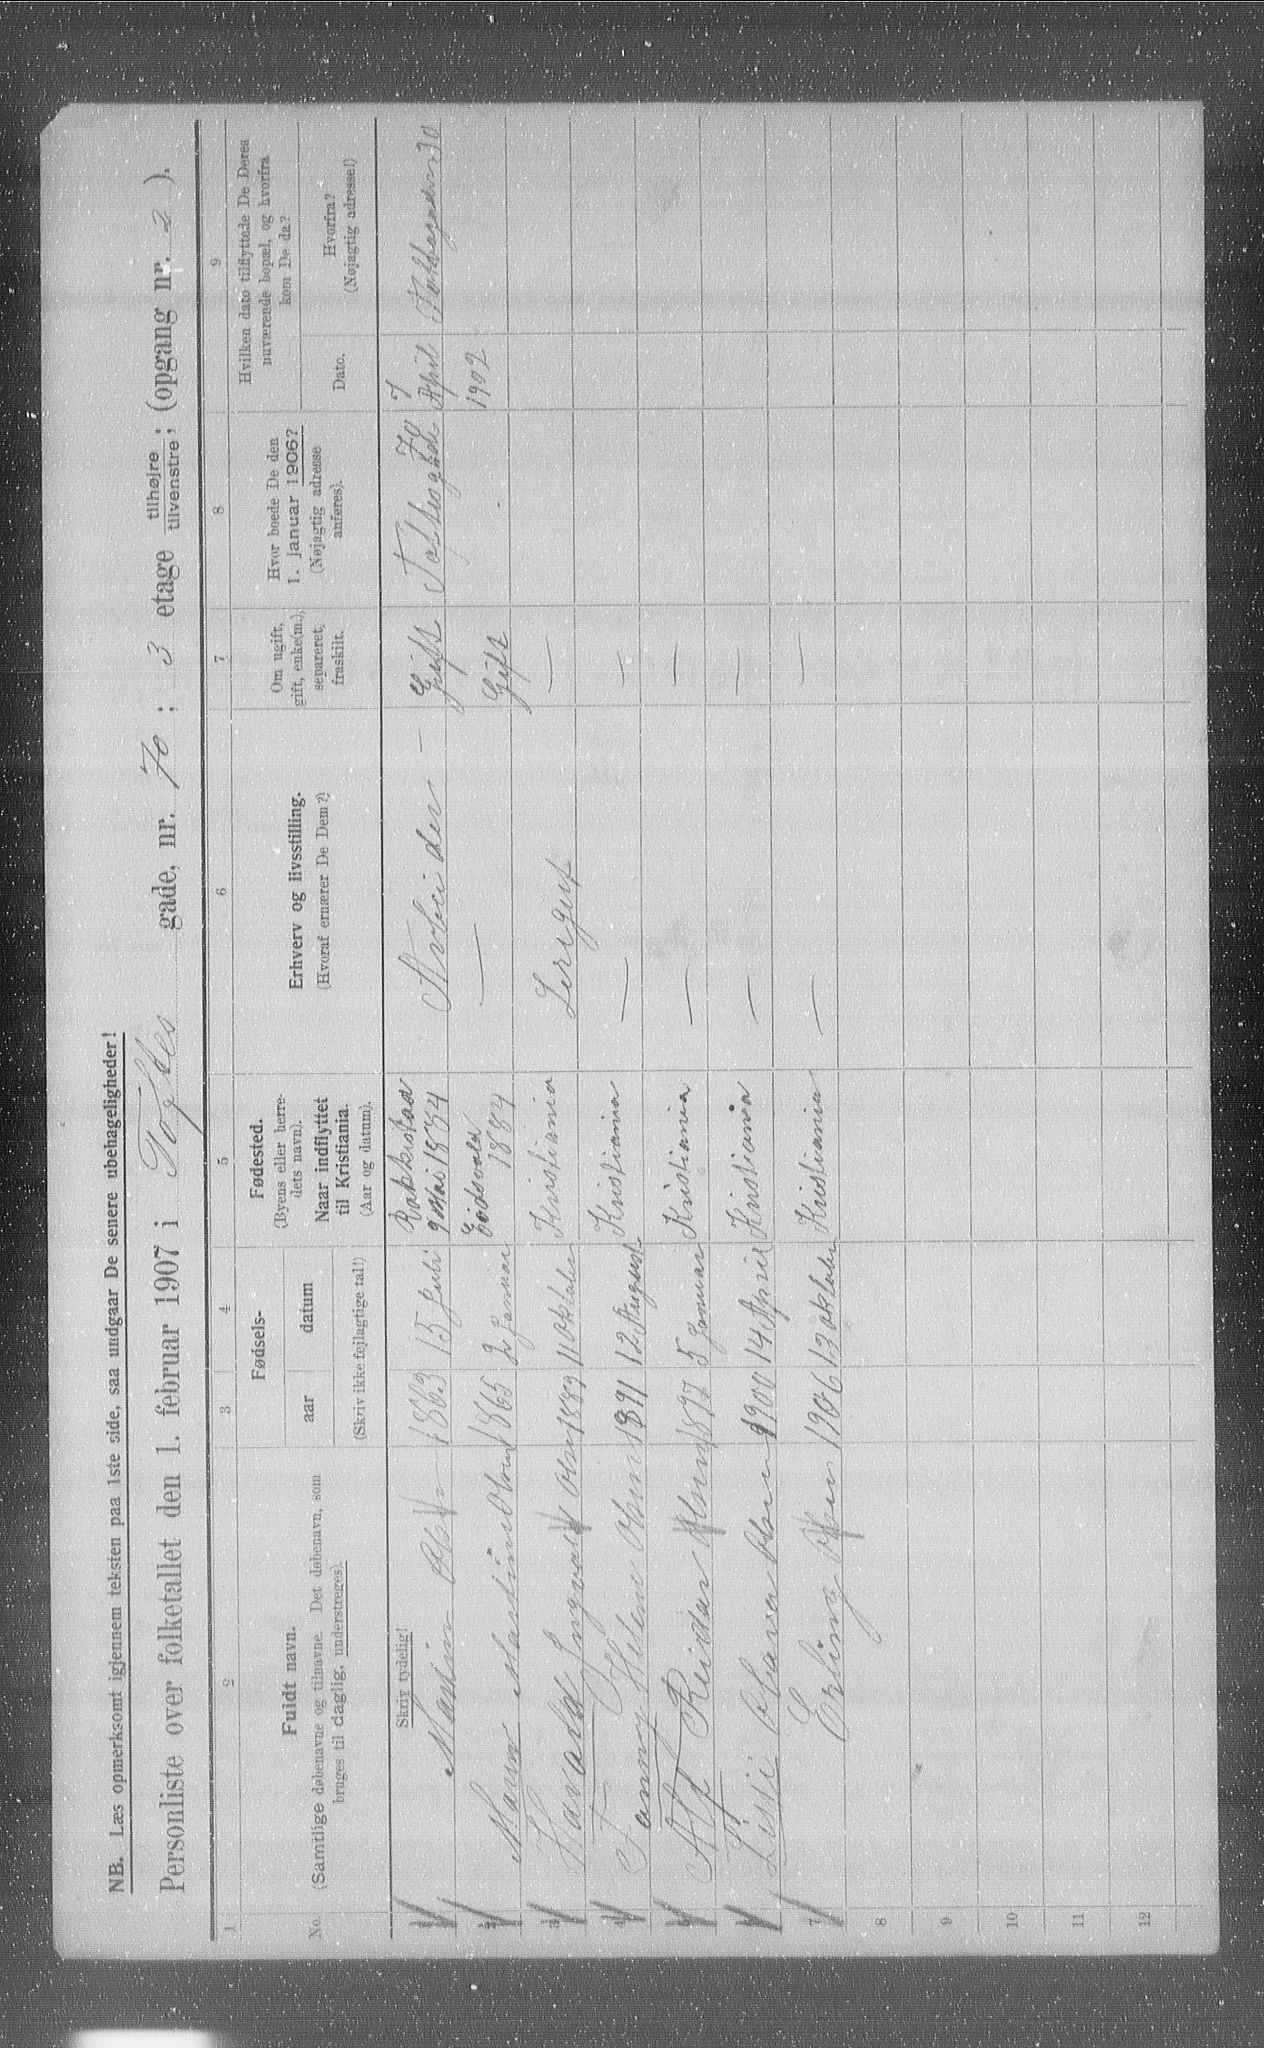 NB. Læs opmerksomt igjennem teksten paa 1ste side, saa undgaar De senere ubehageligheder!
Personliste over folketallet den 1. februar 1907 i Toftes gade, nr. 70; 3 etage tilhøjre/tilvenstre; (opgang nr. 2).
1 2 3 4 5 6 7 8 9
No.
Fuldt navn.
(Samtlige døbenavne og tilnavne. Det døbenavn, som
bruges til daglig, understreges).
Fødsels-
aar datum
(Skriv ikke fejlagtige tal!)
Fødested.
(Byens eller herre-
dets navn).
Naar indflyttet
til Kristiania.
(Aar og datum).
Erhverv og livsstilling.
(Hvoraf ernærer De Dem?)
Om ugift,
gift, enke(m.),
separeret,
fraskilt.
Hvor boede De den
1. januar 1906?
(Nøjagtig adresse
anføres).
Hvilken dato tilflyttede De Deres
nuværende bopæl, og hvorfra
kom De da?
Dato.
Hvorfra?
(Nøjagtig adresse!)
Skriv tydelig!
1 Martin Olsen 1863 15 Juli Rakkestad 9 Mai 1884 Arbeider - Gift Toftesgade 70 7 April 1902
2 Maren Martine Olsen 1865 2 Januar Eidsvold 1884 — Gift
3 Harald Ingvald Olsen 1889 11 Oktober Kristiania —
4 Fanny Helene Olsen 1891 12 August Kristiania — —
5 Alf Reidar Olsen 1897 5 Januar Kristiania — —
6 Lissi Olava Olsen 1900 14 April Kristiania — —
7 Erling Olsen 1906 13 oktober Kristiania — —
8
9
10
11
12